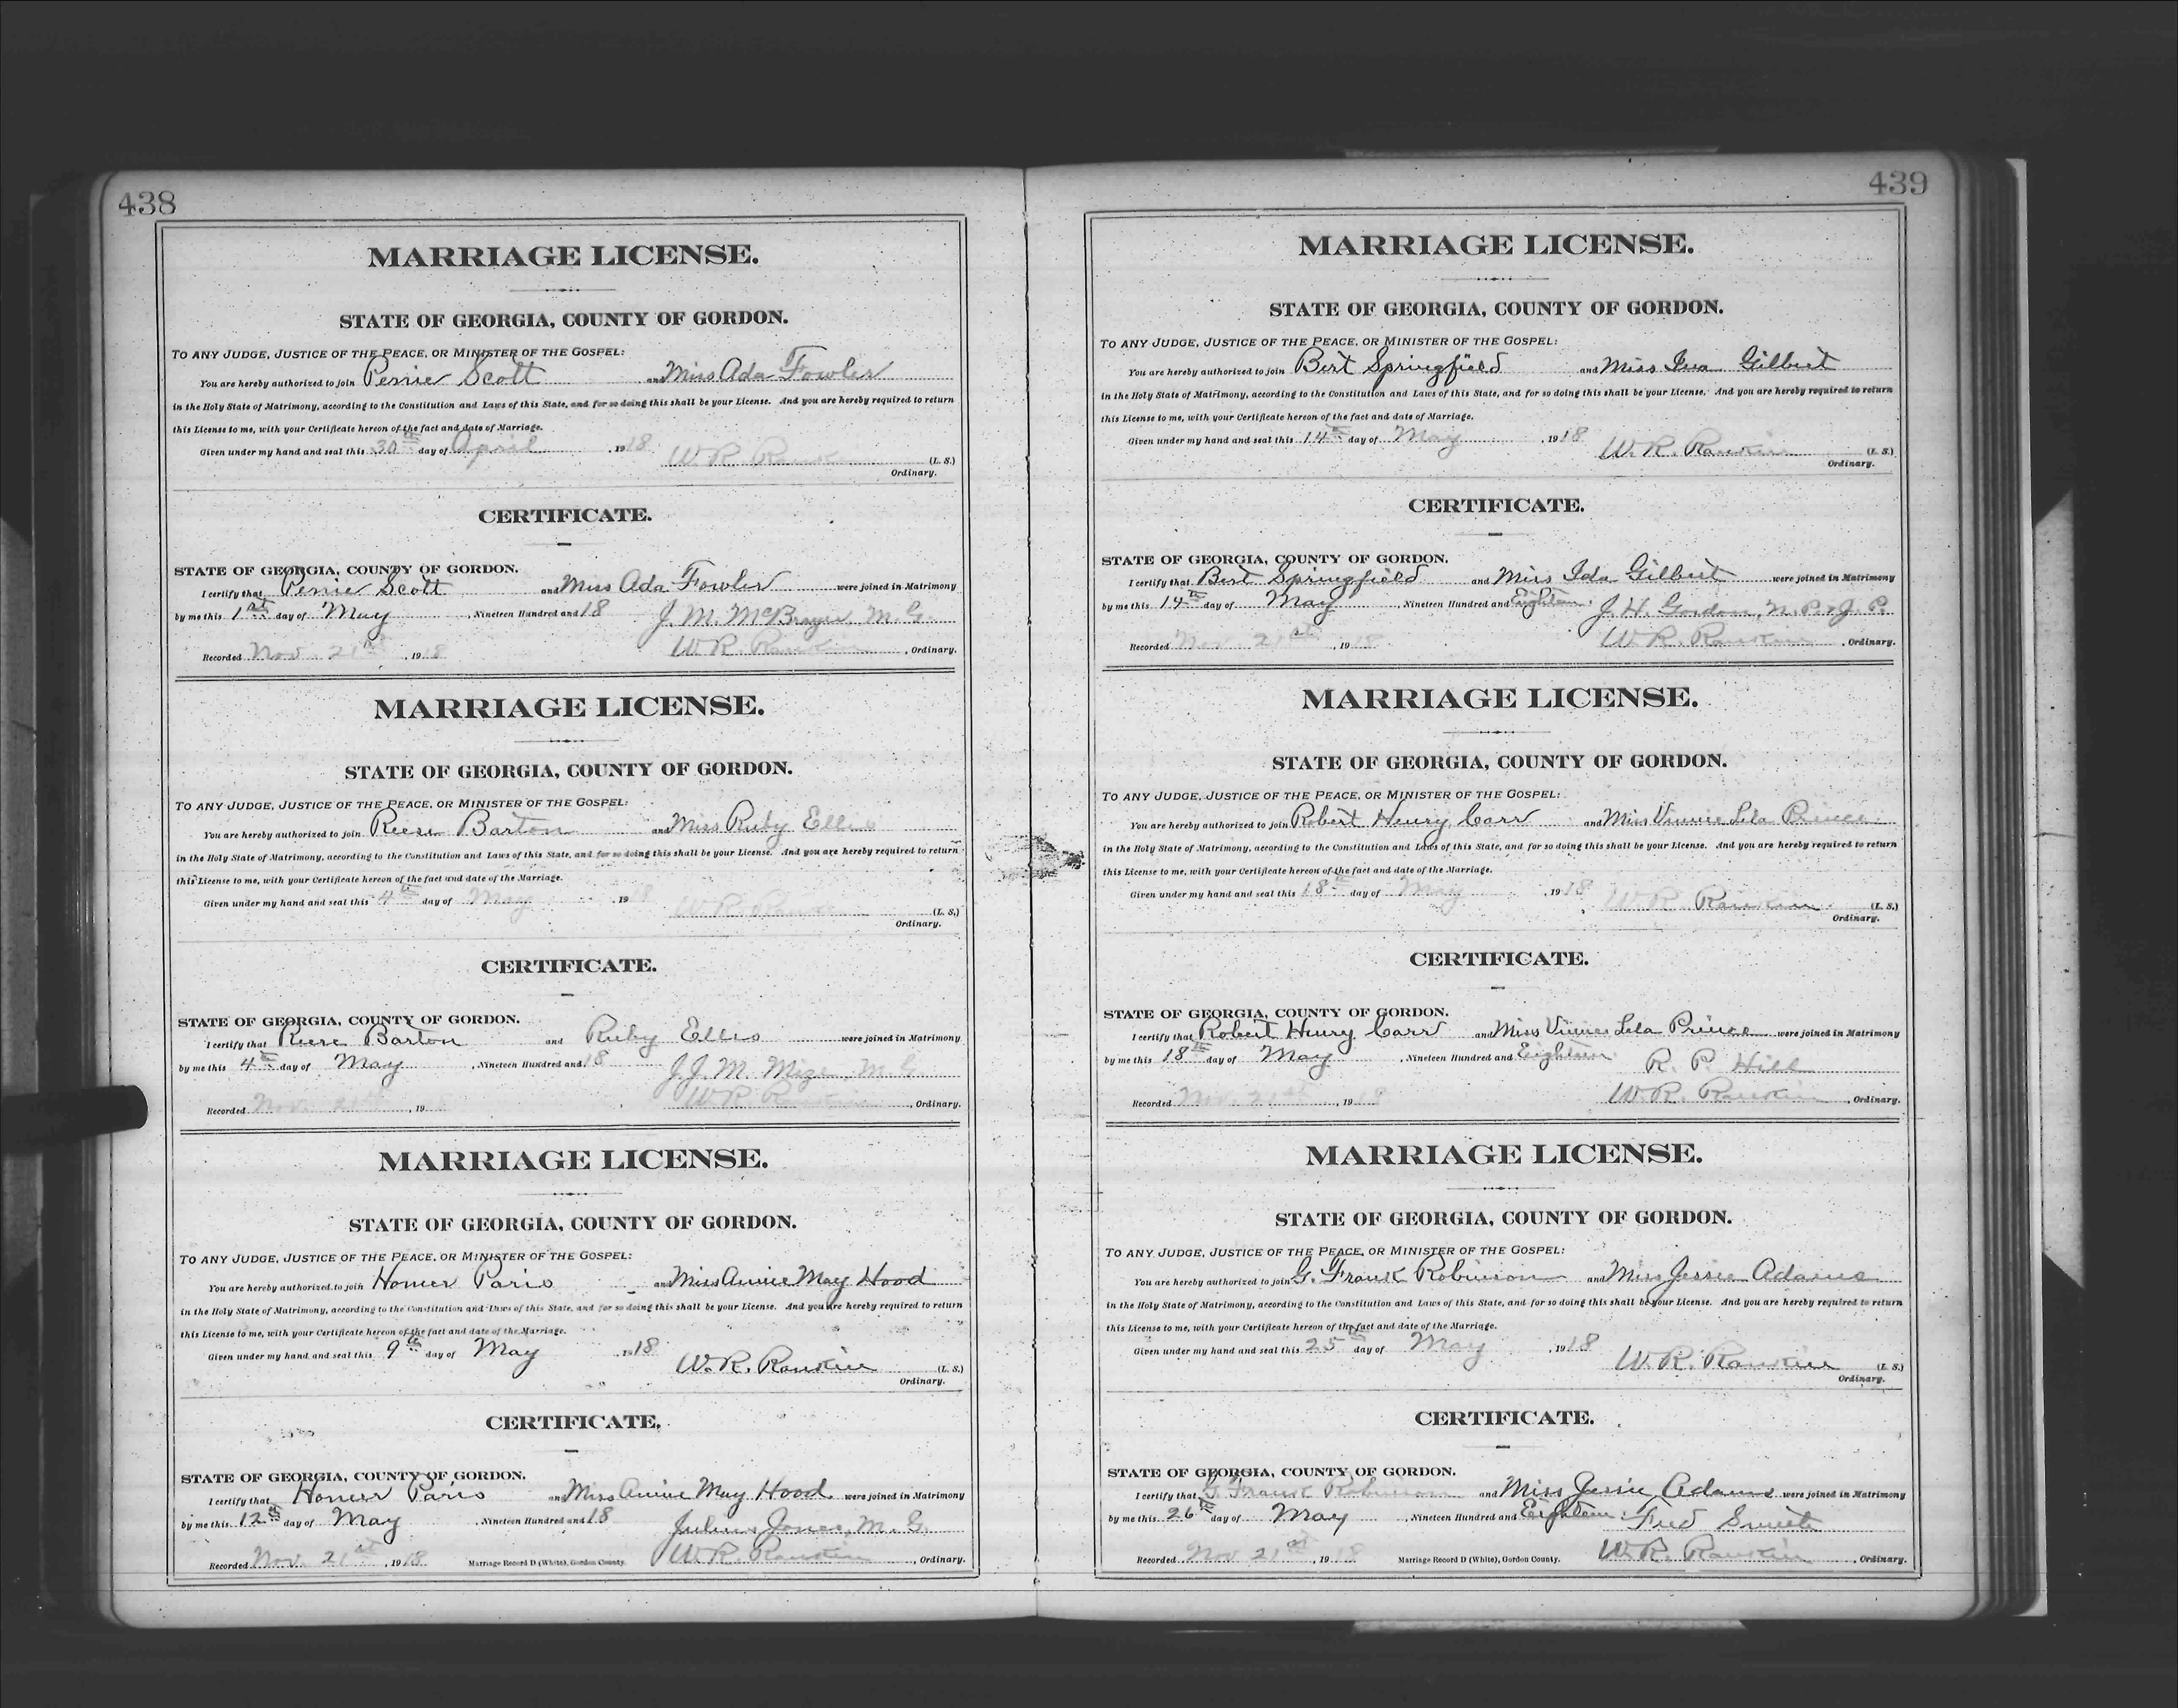 438
MARRIAGE LICENSE.
STATE OF GEORGIA, COUNTY OF GORDON.
TO ANY JUDGE, JUSTICE OF THE PEACE, OR MINISTER OF THE GOSPEL:
You are hereby authorized to join Perrie Scott and Miss Ada Fowler
in the Holy State of Matrimony, according to the Constitution and Laws of this State, and for so doing this shall be your License. And you are hereby required to return
this License to me, with your Certificate hereon of the fact and date of Marriage.
Given under my hand and seal this 30th day of April , 1918 W. R. Rankin (L. S.)
Ordinary.
CERTIFICATE.
STATE OF GEORGIA, COUNTY OF GORDON.
I certify that Perrie Scott and Miss Ada Fowler were joined in Matrimony
by me this 1st day of May , Nineteen Hundred and 18 J. M. McBrayer, M. G.
Recorded Nov. 21st , 1918 W. R. Rankin , Ordinary.
MARRIAGE LICENSE.
STATE OF GEORGIA, COUNTY OF GORDON.
TO ANY JUDGE, JUSTICE OF THE PEACE, OR MINISTER OF THE GOSPEL:
You are hereby authorized to join Reese Barton and Miss Ruby Ellis
in the Holy State of Matrimony, according to the Constitution and Laws of this State, and for so doing this shall be your License. And you are hereby required to return
this License to me, with your Certificate hereon of the fact and date of the Marriage.
Given under my hand and seal this 4th day of May , 1918 W. R. Rankin (L. S.)
Ordinary.
CERTIFICATE.
STATE OF GEORGIA, COUNTY OF GORDON.
I certify that Reese Barton and Ruby Ellis were joined in Matrimony
by me this 4th day of May , Nineteen Hundred and 18 J. J. M. Mize, M. G.
Recorded Nov. 21st , 19 W. R. Rankin , Ordinary.
MARRIAGE LICENSE.
STATE OF GEORGIA, COUNTY OF GORDON.
TO ANY JUDGE, JUSTICE OF THE PEACE, OR MINISTER OF THE GOSPEL:
You are hereby authorized to join Homer Paris and Miss Annie May Hood
in the Holy State of Matrimony, according to the Constitution and Laws of this State, and for so doing this shall be your License. And you are hereby required to return
this License to me, with your Certificate hereon of the fact and date of the Marriage.
Given under my hand and seal this 9th day of May , 1918 W. R. Rankin (L. S.)
Ordinary.
CERTIFICATE.
STATE OF GEORGIA, COUNTY OF GORDON.
I certify that Homer Paris and Miss Annie May Hood were joined in Matrimony
by me this 12th day of May , Nineteen Hundred and 18 Julius Jones, M. G.
Recorded Nov. 21st , 1918 Marriage Record D (White), Gordon County. W. R. Rankin , Ordinary.
439
MARRIAGE LICENSE.
STATE OF GEORGIA, COUNTY OF GORDON.
TO ANY JUDGE, JUSTICE OF THE PEACE, OR MINISTER OF THE GOSPEL:
You are hereby authorized to join Bert Springfield and Miss Iva Gilbert
in the Holy State of Matrimony, according to the Constitution and Laws of this State, and for so doing this shall be your License. And you are hereby required to return
this License to me, with your Certificate hereon of the fact and date of Marriage.
Given under my hand and seal this 14th day of May , 1918 W. R. Rankin (L. S.)
Ordinary.
CERTIFICATE.
STATE OF GEORGIA, COUNTY OF GORDON.
I certify that Bert Springfield and Miss Ida Gilbert were joined in Matrimony
by me this 14th day of May , Nineteen Hundred and Eighteen. J. H. Gordon, N. P. & J. P.
Recorded Nov. 21st , 1918 W. R. Rankin , Ordinary.
MARRIAGE LICENSE.
STATE OF GEORGIA, COUNTY OF GORDON.
TO ANY JUDGE, JUSTICE OF THE PEACE, OR MINISTER OF THE GOSPEL:
You are hereby authorized to join Robert Henry Carr and Miss Vinnie Lela Prince
in the Holy State of Matrimony, according to the Constitution and Laws of this State, and for so doing this shall be your License. And you are hereby required to return
this License to me, with your Certificate hereon of the fact and date of the Marriage.
Given under my hand and seal this 18th day of May , 1918 W. R. Rankin (L. S.)
Ordinary.
CERTIFICATE.
STATE OF GEORGIA, COUNTY OF GORDON.
I certify that Robert Henry Carr and Miss Vinnie Lela Prince were joined in Matrimony
by me this 18th day of May , Nineteen Hundred and Eighteen. R. P. Hill
Recorded Nov. 21st , 1918 W. R. Rankin , Ordinary.
MARRIAGE LICENSE.
STATE OF GEORGIA, COUNTY OF GORDON.
TO ANY JUDGE, JUSTICE OF THE PEACE, OR MINISTER OF THE GOSPEL:
You are hereby authorized to join G. Frank Robinson and Miss Jessie Adams
in the Holy State of Matrimony, according to the Constitution and Laws of this State, and for so doing this shall be your License. And you are hereby required to return
this License to me, with your Certificate hereon of the fact and date of the Marriage.
Given under my hand and seal this 25th day of May , 1918 W. R. Rankin (L. S.)
Ordinary.
CERTIFICATE.
STATE OF GEORGIA, COUNTY OF GORDON.
I certify that G. Frank Robinson and Miss Jessie Adams were joined in Matrimony
by me this 26th day of May , Nineteen Hundred and Eighteen. Fred Smith
Recorded Nov 21st , 1918 Marriage Record D (White), Gordon County. W. R. Rankin , Ordinary.